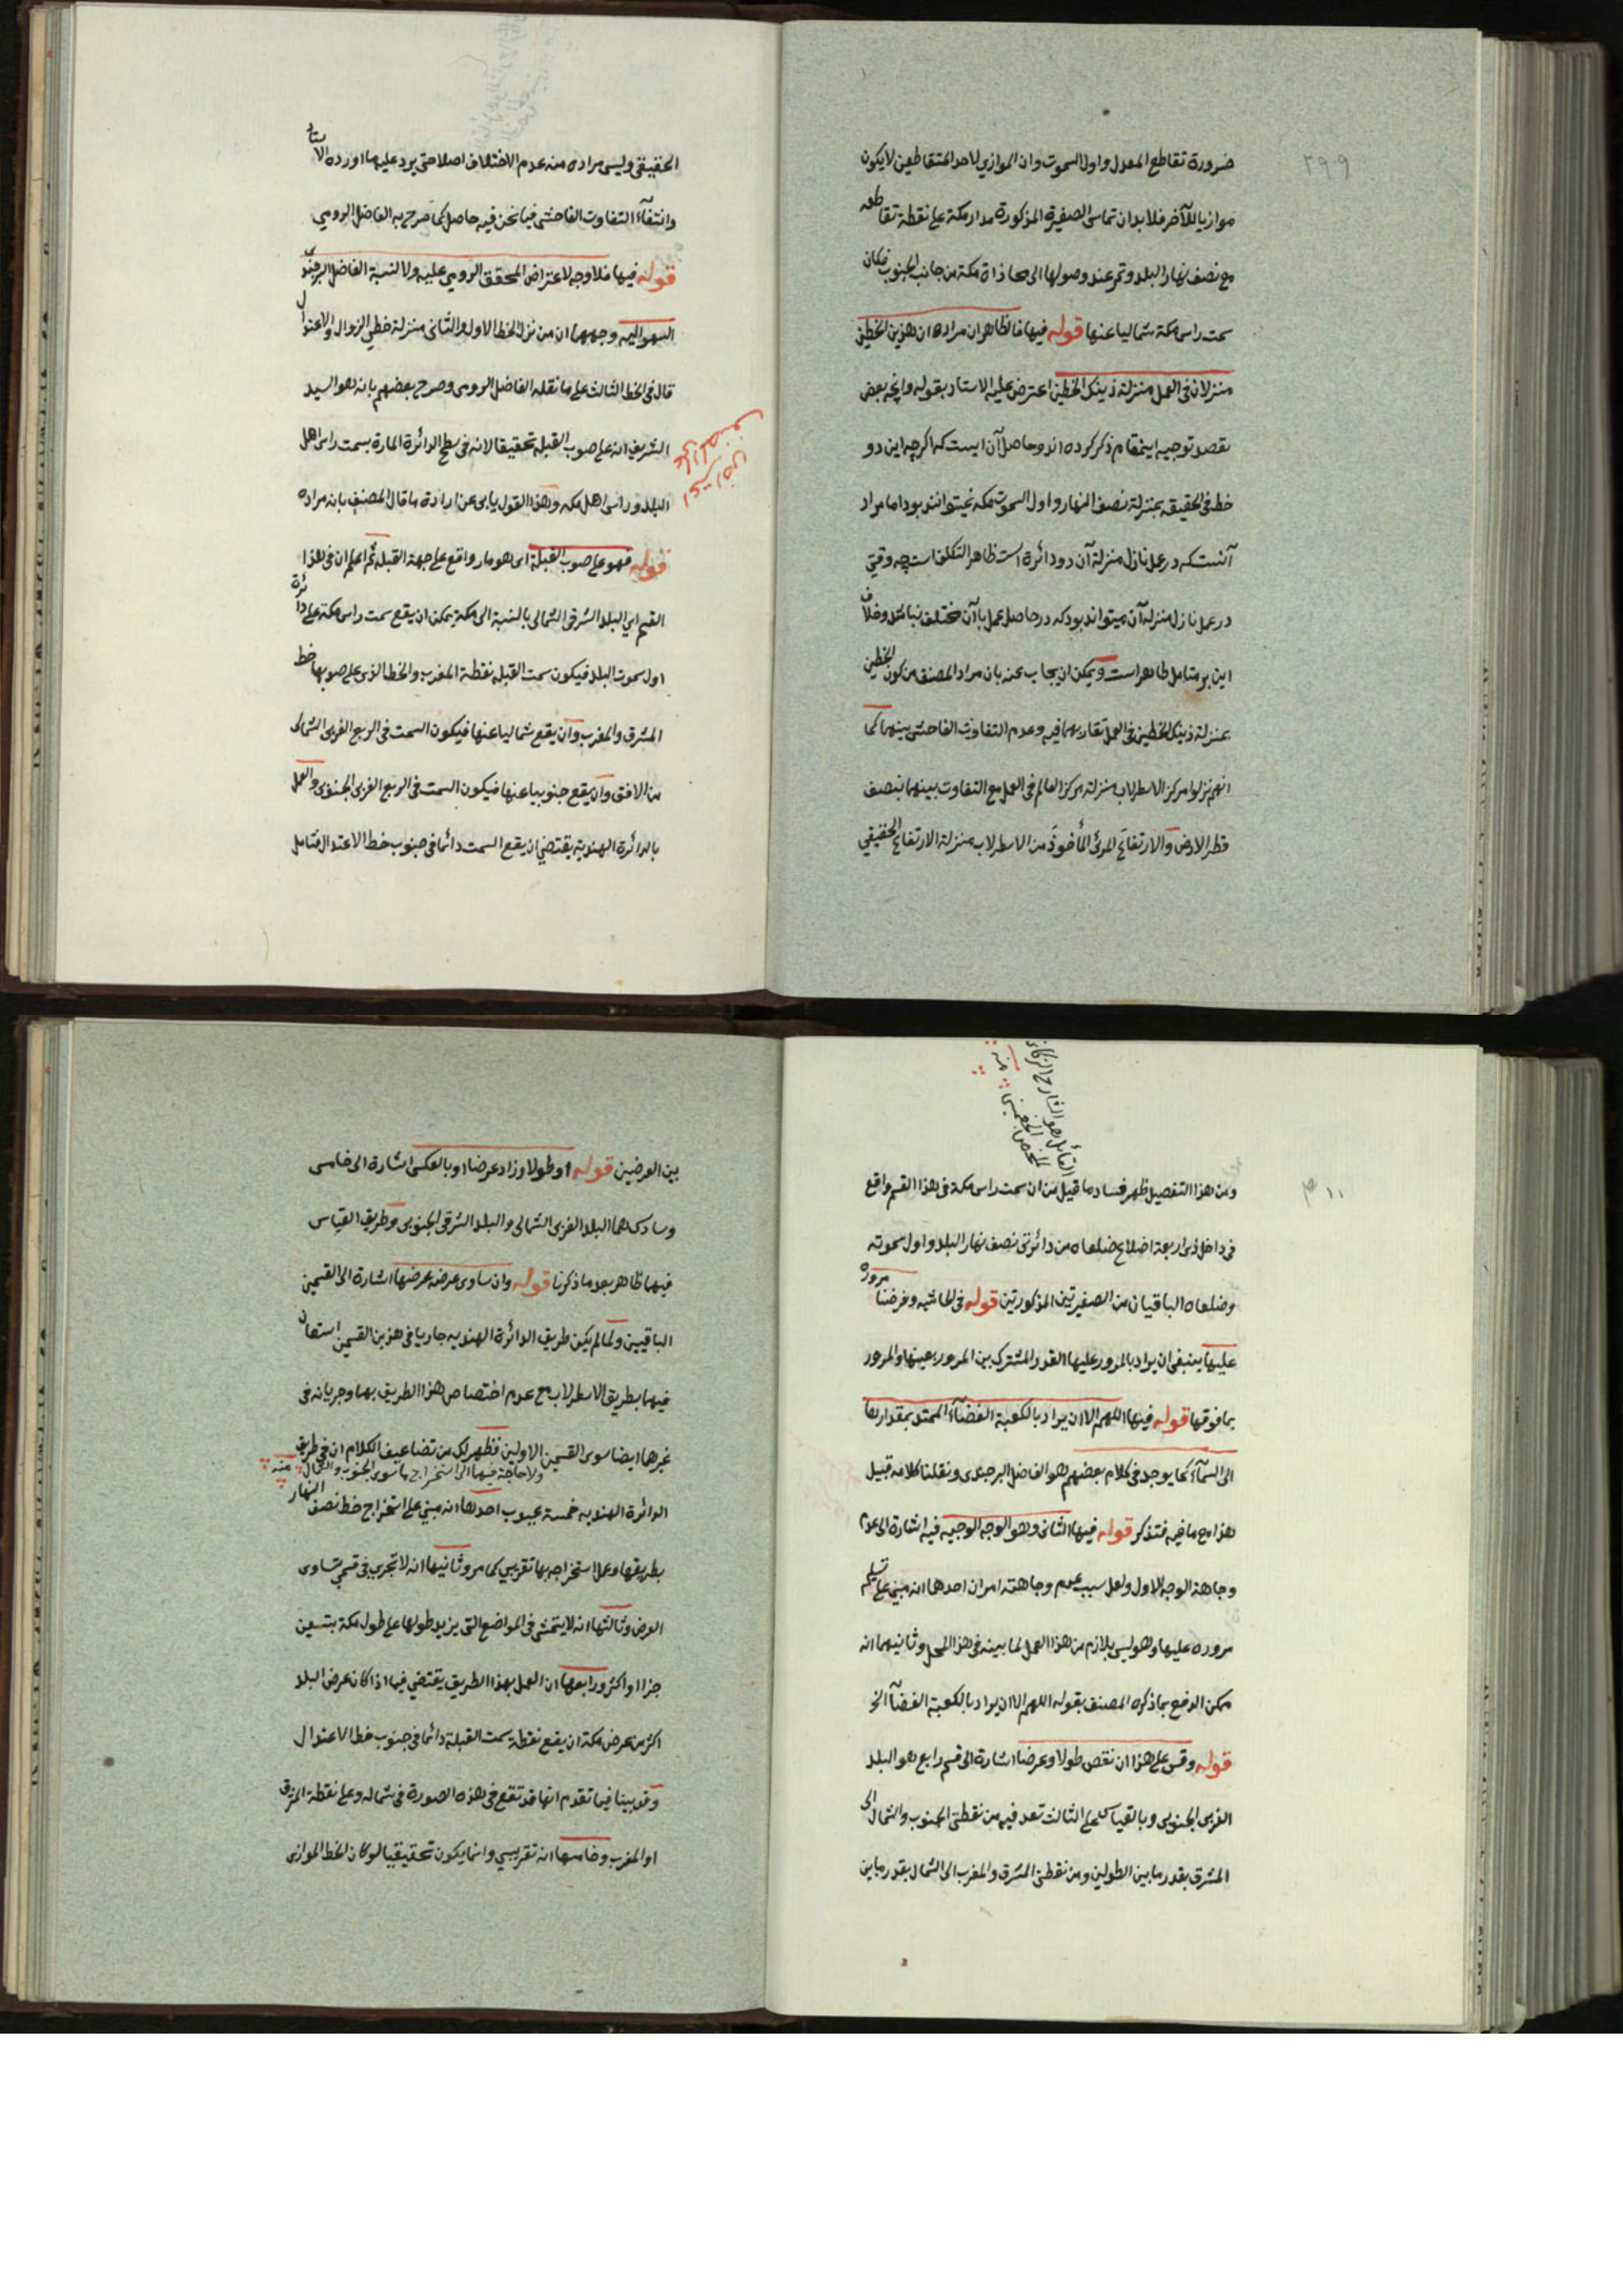 ٢٩٩
ضرورة تقاطع المعدل واول السموت وان الموازي لاحد المتقاطعين لا يكون
موازيا للآخر فلا بد ان تماس الصغيرة المذكورة مدار مكة على نقطة تقاطعه
مع نصف نهار البلد وتمر عند وصولها الى محاذاة مكة من جانب الجنوب فكان
سمت راس مكة شماليا عنها قوله فيها فالظاهر ان مراده ان هذين الخطين
منزلان فى العمل منزلة ذينك الخطين اعترض عليه الاستاد بقوله وانچه بعض
بقصد توجيه اينمقام ذكر كرده اند وحاصل آن اينست كه اكرچه اين دو
خط فى الحقيقه بمنزلة نصف النهار واول السموت مكه نميتوانند بود اما مراد
آنست كه در عمل نازل منزلة آن دو دائرة است ظاهر التكلف است چه وقتى
در عمل نازل منزلة آن ميتواند بود كه در حاصل عمل باآن مختلف نباشد وخلاف
اين بر متامل ظاهر است ويمكن ان يجاب عنه بان مراد المصنف من كون الخطين
بمنزلة ذينك الخطين فى العمل تقاربهما فيه وعدم التفاوت الفاحش بينهما كما
انهم نزلوا مركز الاسطرلاب منزلة مركز العالم فى العمل مع التفاوت بينهما بنصف
قطر الارض والارتفاع المرئى المأخوذ من الاسطرلاب منزلة الارتفاع الحقيقي
الحقيقى وليس مراده منه عدم الاختلاف اصلا حتى يرد عليه ما اورده الاستاد
وانتفاء التفاوت الفاحش فيما نحن فيه حاصل كما صرح به الفاضل الرومى
قوله فيها فلا وجه لاعتراض المحقق الرومى عليه ولا لنسبة الفاضل البرجندى
السهو اليه وجههما ان من نزل الخط الاول والثانى منزلة خطى الزوال والاعتدال
قال فى الخط الثالث على ما نقله الفاضل الرومى وصرح بعضهم بانه هو السيد
الشريف انه على صوب القبلة تحقيقا لانه فى سطح الدائرة المارة بسمت راس اهل
البلد وراس اهل مكه وهذا القول يابى عن ارادة ما قال المصنف بانه مراده
قوله فهو على صوب القبلة اى هو مار واقع على جهة القبلة ثم اعلم ان فى هذا
القسم اى البلد الشرقى الشمالى بالنسبة الى مكة يمكن ان يقع سمت راس مكة على دائرة
اول سموت البلد فيكون سمت القبلة نقطة المغرب والخط الذى على صوبها خط
المشرق والمغرب وان يقع شماليا عنها فيكون السمت فى الربع الغربى الشمالى
من الافق وان يقع جنوبيا عنها فيكون السمت فى الربع الغربى الجنوبى والعمل
بالدائرة الهندية يقتضى ان يقع السمت دائما فى جنوب خط الاعتدال فتامل
القائل هو الشارح
منه
ومن هذا التفصيل ظهر فساد ما قيل من ان سمت راس مكة فى هذا القسم واقع
فى داخل ذى اربعة اضلاع ضلعاه من دائرتى نصف نهار البلد واول سموته
وضلعاه الباقيان من الصغيرتين المذكورتين قوله فى الحاشيه وفرضنا مروره
عليها ينبغى ان يراد بالمرور عليها القدر المشترك بين المرور بعينها والمرور
بما فوقها قوله فيها اللهم الا ان يراد بالكعبة الفضاء الممتد بمقدارها
الى السماء كما يوجد فى كلام بعضهم هو الفاضل البرجندى ونقلنا كلامه قبيل
هذا مع ما فيه فتذكر قوله فيها الثانى وهو الوجه الوجيه فيه اشارة الى عدم
وجاهة الوجه الاول ولعل سبب عدم وجاهته امران احدهما انه مبنى على تسليم
مروره عليها وهو ليس بلازم من هذا العمل لما بينه فى هذا المحل وثانيهما انه
ممكن الدفع بما ذكره المصنف بقوله اللهم الا ان يراد بالكعبة الفضاء الخ
قوله وقس على هذا ان نقص طولا وعرضا اشارة الى قسم رابع هو البلد
الغربى الجنوبى وبالقياس على الثالث تعد فيه من نقطتى الجنوب والشمال الى
المشرق بقدر ما بين الطولين ومن نقطتى المشرق والمغرب الى الشمال بقدر ما بين
بين العرضين قوله او طولا وزاد عرضا او بالعكس اشارة الى خامس
وسادس هما البلد الغربى الشمالى والبلد الشرقى الجنوبى وطريق القياس
فيهما ظاهر بعد ما ذكرنا قوله وان ساوى عرضه عرضها اشارة الى القسمين
الباقيين ولما لم يكن طريق الدائرة الهنديه جاريا فى هذين القسمين استعان
فيهما بطريق الاسطرلاب مع عدم اختصاص هذا الطريق بهما وجريانه فى
غيرها ايضا سوى القسمين الاولين فظهر لك من تضاعيف الكلام ان فى طريق
ولا حاجة فيهما الى استخراج ما سوى الجنوب والشمال منه
الدائرة الهنديه خمسة عيوب احدها انه مبنى على استخراج خط نصف النهار
بطريقها وعمل استخراجه بها تقريبى كما مر وثانيها انه لا تجرى فى قسمى تساوى
العرض وثالثها انه لا يتمشى فى المواضع التى يزيد طولها على طول مكة بتسعين
جزاء او اكثر ورابعها ان العمل بهذا الطريق يقتضى فيما اذا كان عرض البلد
اكثر من عرض مكة ان يقع نقطة سمت القبلة دائما فى جنوب خط الاعتدال
وقد بينا فيما تقدم انها قد تقع فى هذه الصورة فى شماله وعلى نقطة المشرق
او المغرب وخامسها انه تقريبى وانما يكون تحقيقيا لو كان الخط الموازى